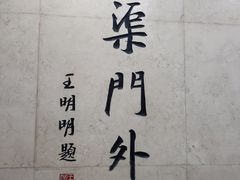 渠門外
王明明題